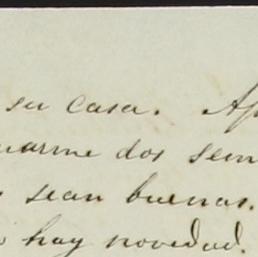 su casa. Ap
uarme dos sem
sean buenas.
hay novedad.